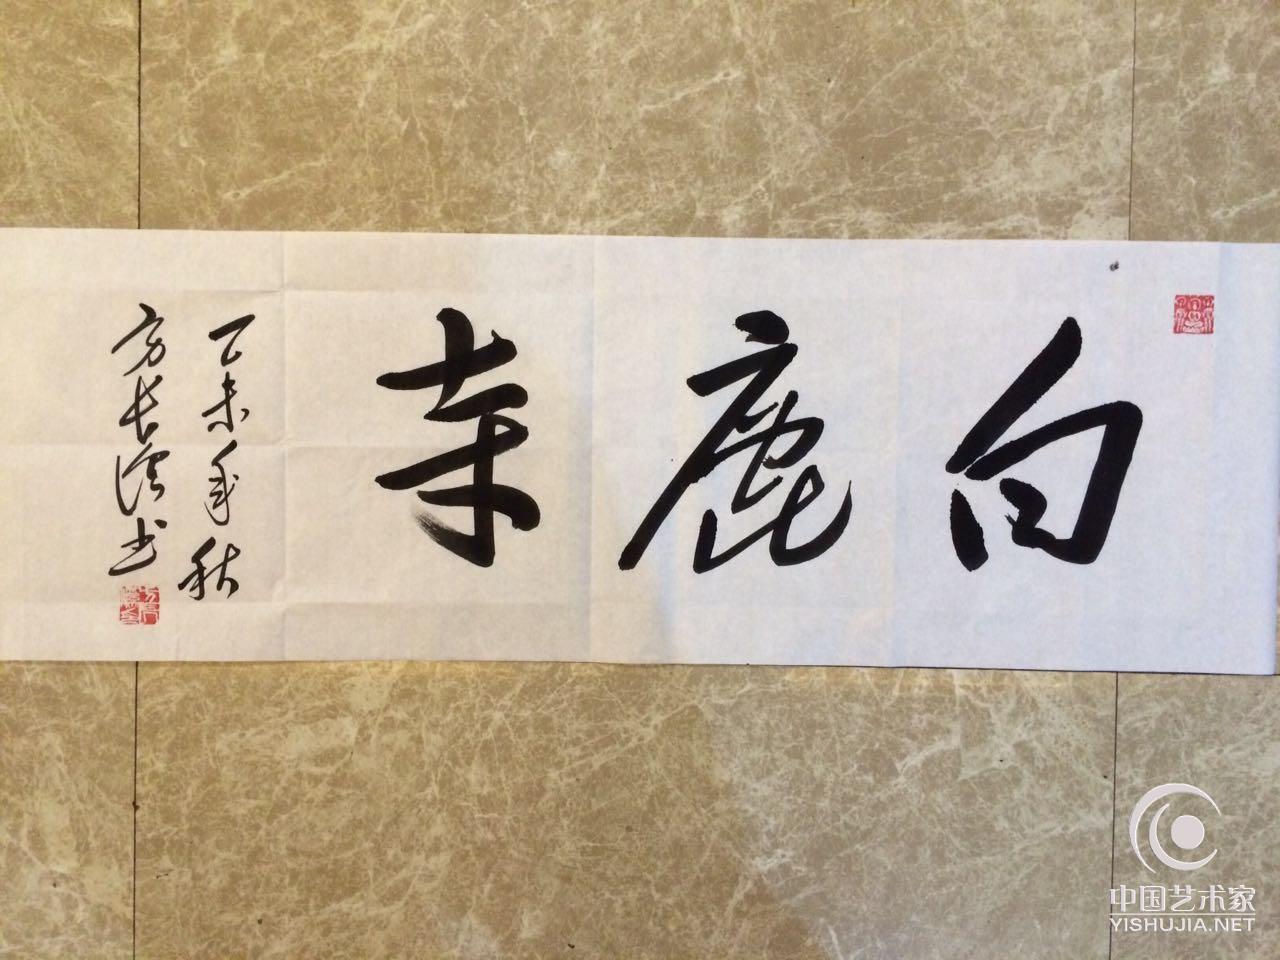 白鹿寺
乙未年秋
方长信书
中国艺术家
YISHUJIA.NET